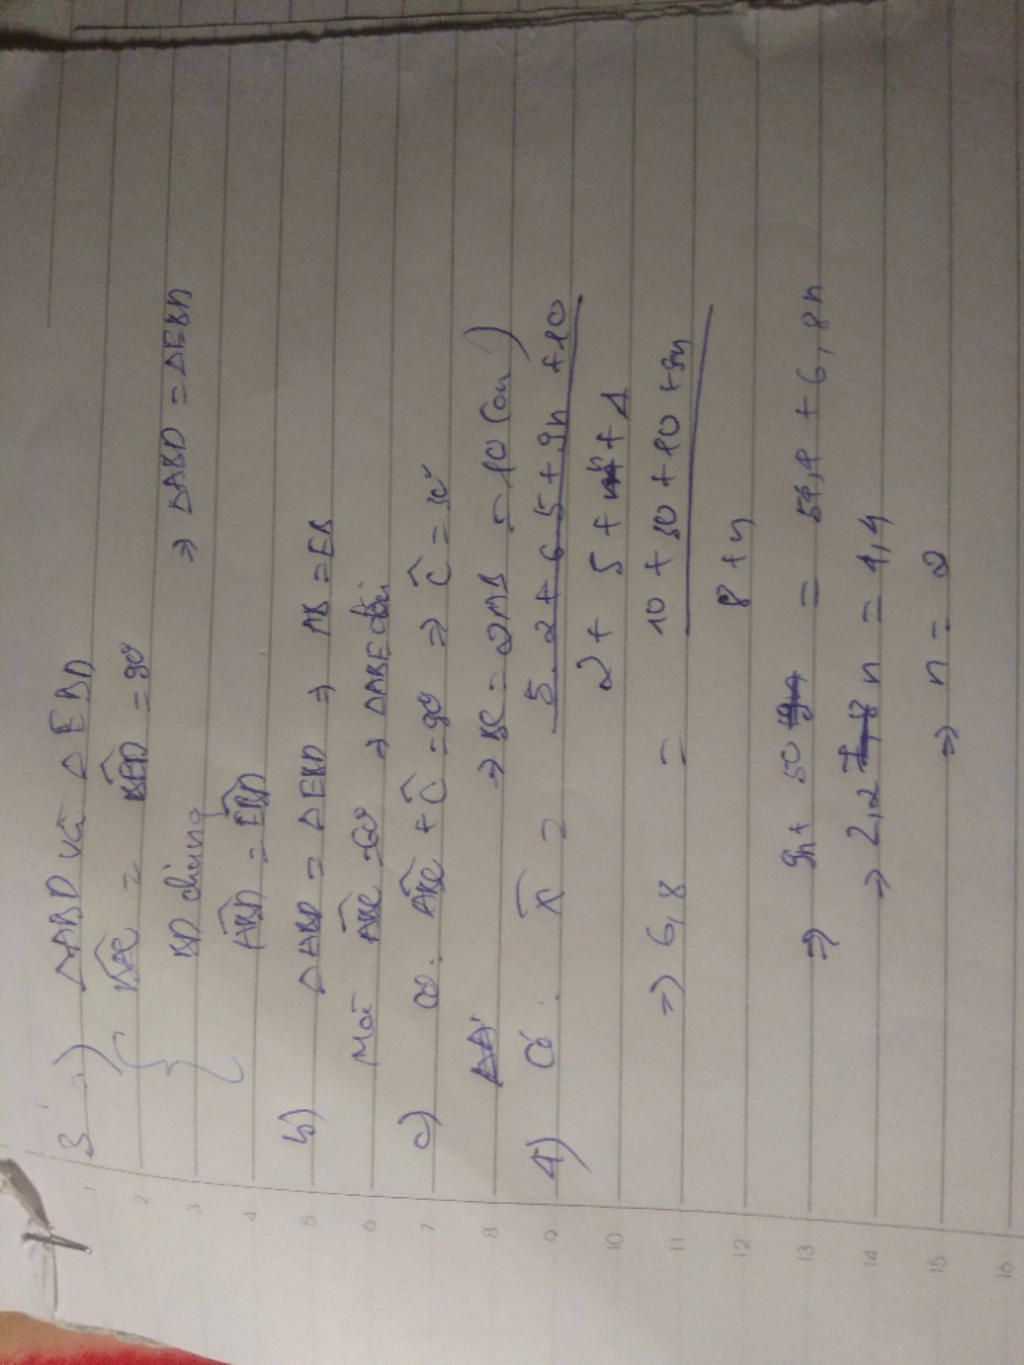 3 a) ΔABD và ΔEBD
BAC = BED = 90°
BD chung ⇒ ΔABD = ΔEBD
ABD = EBD
b) ΔABD = ΔEBD ⇒ AB = EB
Mà ABC = 60° ⇒ ΔABE đều
c) có: ABC + C = 90° ⇒ C = 30°
⇒ BC = 2AB = 10 (cm)
4) Có: X = 5.2 + 6.5 + 9n + 10
2 + 5 + n + 1
⇒ 6,8 = 10 + 30 + 10 + 9n
8 + n
⇒ 9n + 50 = 54,4 + 6,8n
⇒ 2,2 n = 4,4
⇒ n = 2
1
2
3
4
5
6
7
8
9
10
11
12
13
14
15
16